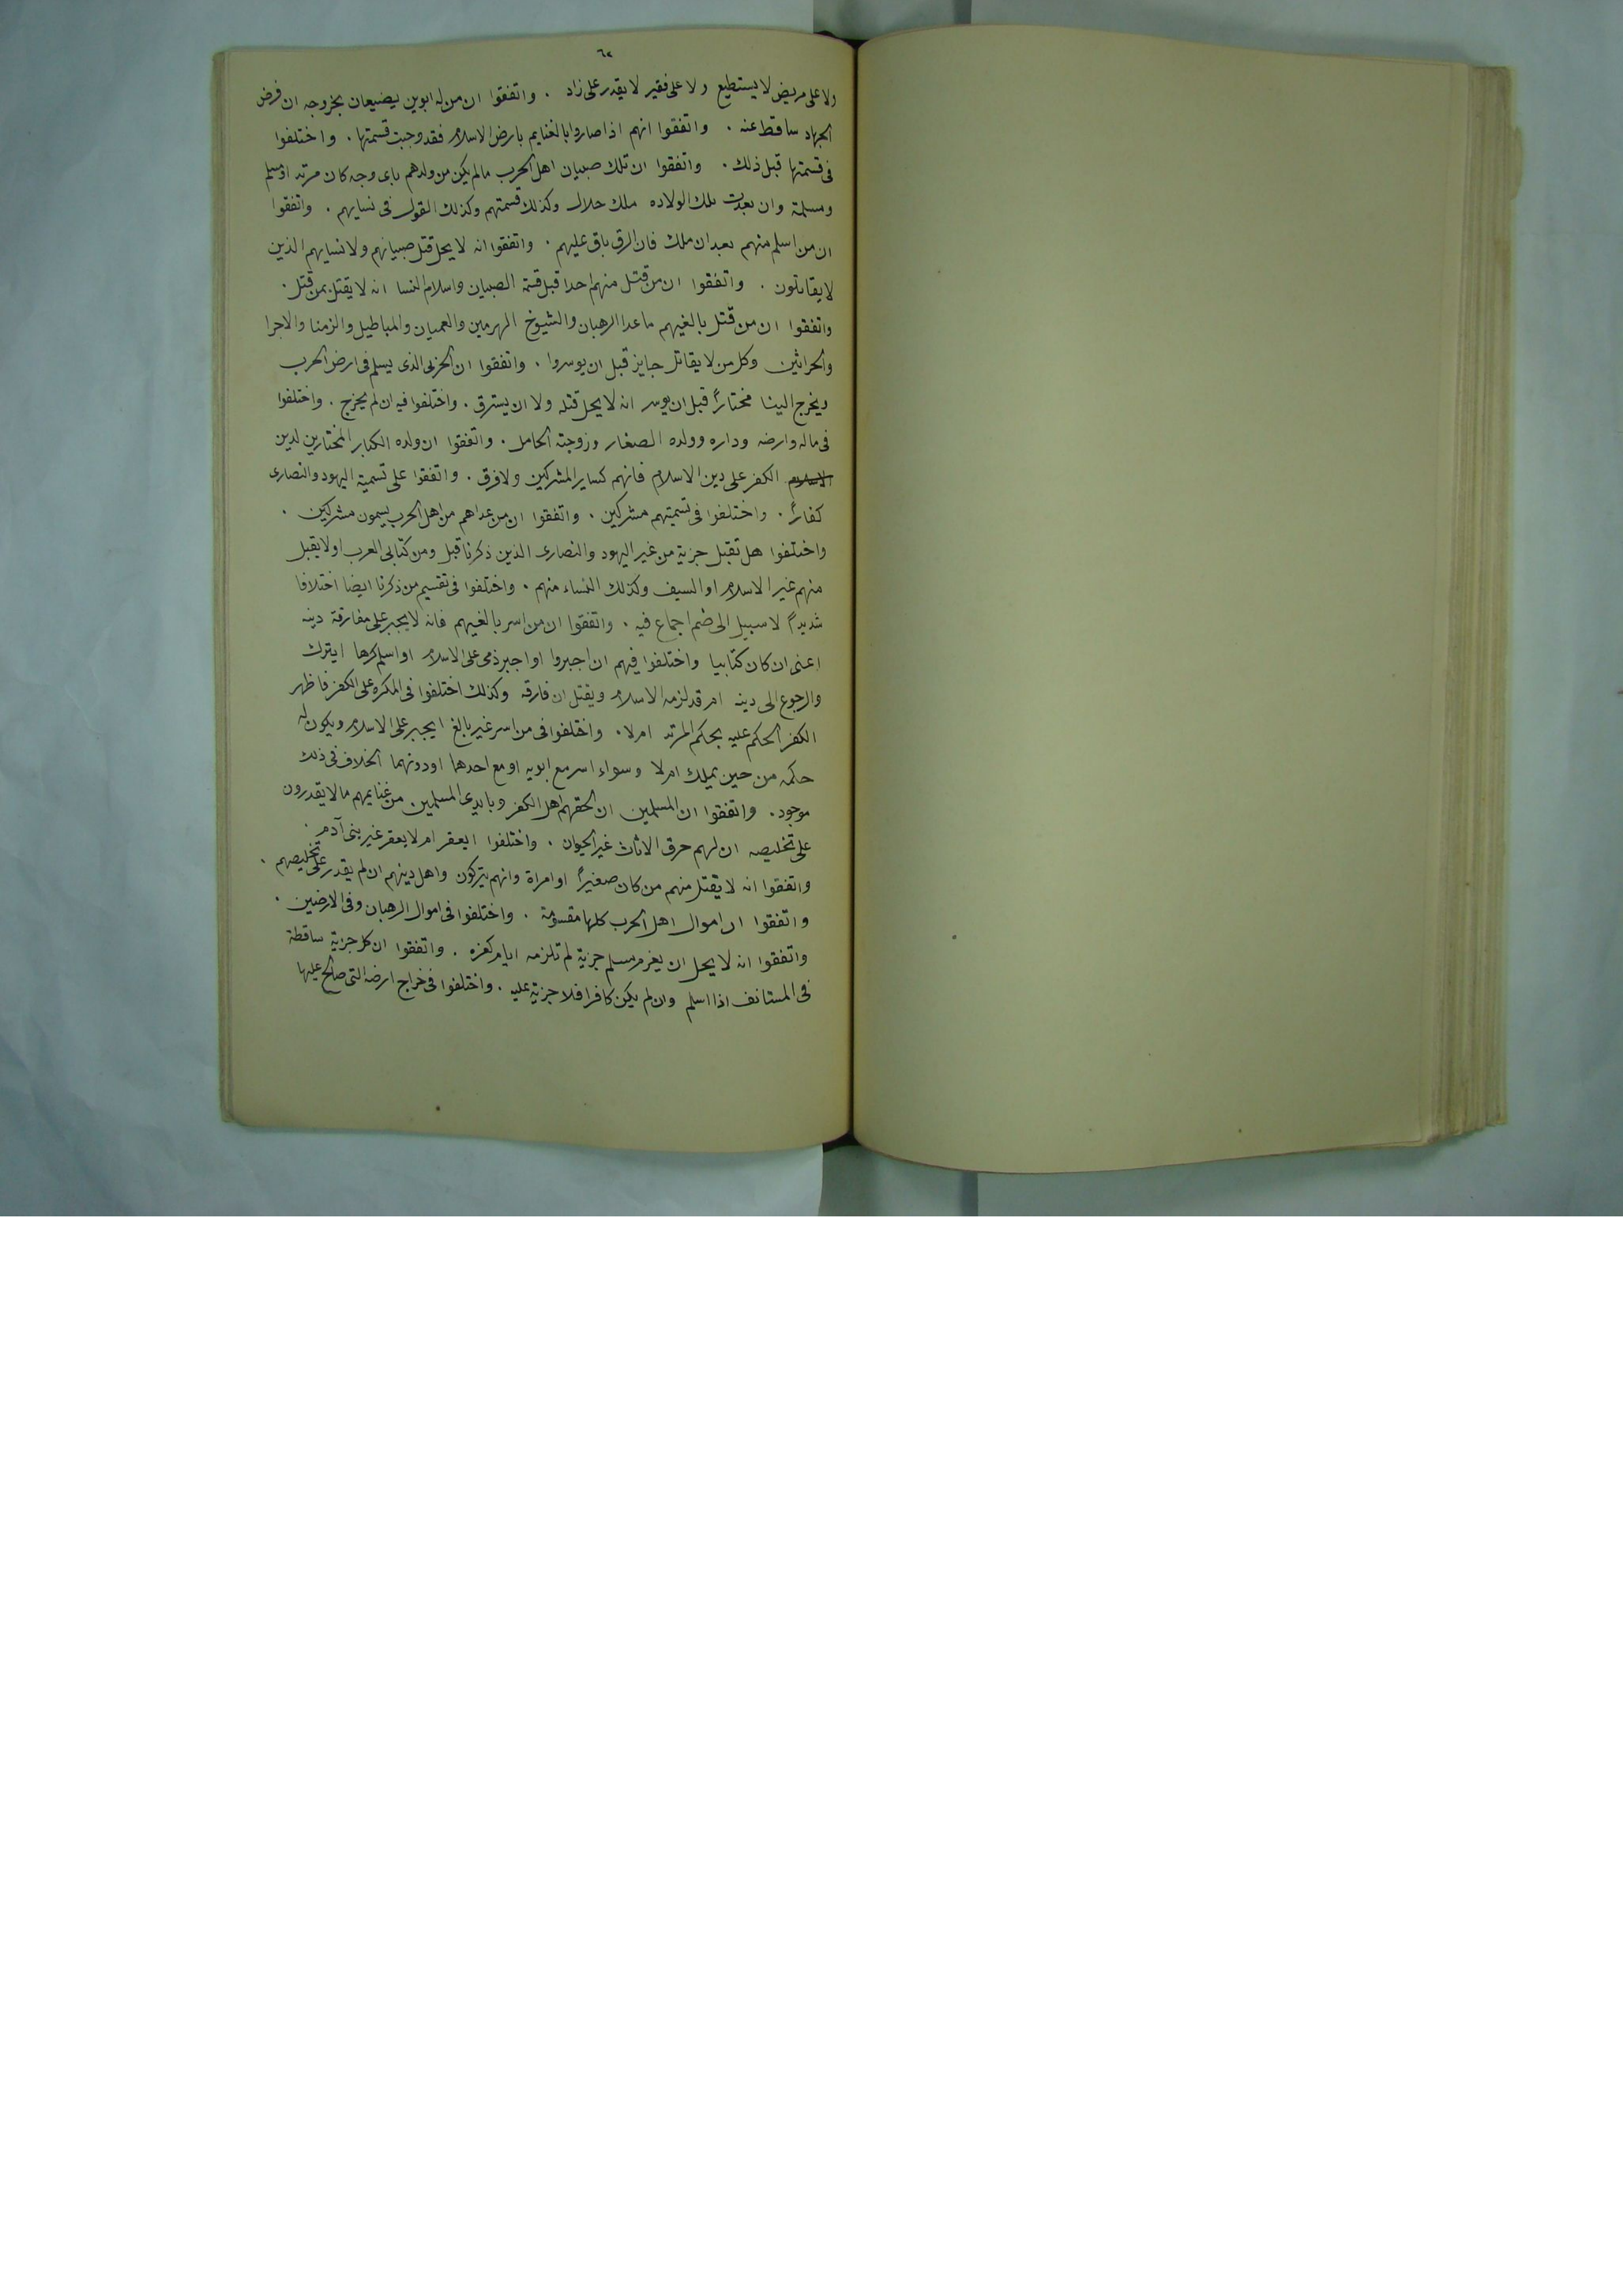 ٦٢
ولا على مريض لا يستطيع ولا على فقير لا يقدر على زاد . واتفقوا ان من له ابوين يضيعان بخروجه ان فرض
الجهاد ساقط عنه . واتفقوا انهم اذا صاروا بالغنايم بارض الاسلام فقد وجبت قسمتها . واختلفوا
فى قسمتها قبل ذلك . واتفقوا ان تلك صبيان اهل الحرب مالم يكن من ولدهم باى وجه كان مرتد او مسلم
ومسلمة وان بعدت تلك الولاده ملك حلال وكذلك قسمتهم وكذلك القول فى نسايهم . واتفقوا
ان من اسلم منهم بعد ان ملك فان الرق باق عليهم . واتفقوا انه لا يحل قتل صبيانهم ولا نسايهم الذين
لا يقاتلون . واتفقوا ان من قتل منهم احدا قبل قسمة الصبيان واسلام النسا انه لا يقتل بمن قتل .
واتفقوا ان من قتل بالغيهم ماعدا الرهبان والشيوخ الهرمين والعميان والمباطيل والزمنا والاجرا
والحراثين وكل من لا يقاتل جايز قبل ان يوسروا . واتفقوا ان الحربى الذى يسلم فى ارض الحرب
ويخرج الينا مختاراً قبل ان يوسر انه لا يحل قتله ولا ان يسترق . واختلفوا فيه ان لم يخرج . واختلفوا
فى ماله وارضه وداره وولده الصغار وزوجته الحامل . واتفقوا ان ولده الكبار المختارين لدين
الاسلام الكفر على دين الاسلام فانهم كساير المشركين ولا فرق . واتفقوا على تسمية اليهود والنصارى
كفاراً . واختلفوا فى تسميتهم مشركين . واتفقوا ان من عداهم من اهل الحرب يسمون مشركين .
واختلفوا هل تقبل جزية من غير اليهود والنصارى الذين ذكرنا قبل ومن كتابى العرب او لا يقبل
منهم غير الاسلام او السيف وكذلك النساء منهم . واختلفوا فى تقسيم من ذكرنا ايضا اختلافا
شديداً لا سبيل الى ضم اجماع فيه . واتفقوا ان من اسر بالغيهم فانه لا يجبر على مفارقة دينه
اعنى ان كان كتابيا واختلفوا فيهم ان اجبروا او اجبر ذمى على الاسلام او اسلم كرها ايترك
والرجوع الى دينه ام قد لزمه الاسلام ويقتل ان فارقه وكذلك اختلفوا فى المكره على الكفر فاظهر
الكفر الحكم عليه بحكم المرتد ام لا . واختلفوا فى من اسر غير بالغ ايجبر على الاسلام ويكون له
حكمه من حين يملك ام لا وسواء اسر مع ابويه او مع احدهما او دونهما الخلاف فى ذلك
موجود . واتفقوا ان المسلمين ان لحقهم اهل الكفر وبايدى المسلمين من غنايمهم ما لا يقدرون
على تخليصه ان لهم حرق الاثاث غير الحيوان . واختلفوا ايعقر ام لا يعقر غير بنى آدم .
واتفقوا انه لا يقتل منهم من كان صغيراً او امراة وانهم يتركون واهل دينهم ان لم يقدر على تخليصهم .
واتفقوا ان اموال اهل الحرب كلها مقسومة . واختلفوا فى اموال الرهبان وفى الارضين .
واتفقوا انه لا يحل ان يغرم مسلم جزية لم تلزمه ايام كفره . واتفقوا ان كل جزية ساقطة
فى المستانف اذا اسلم وان لم يكن كافرا فلا جزية عليه . واختلفوا فى خراج ارضه التى صالح عليها